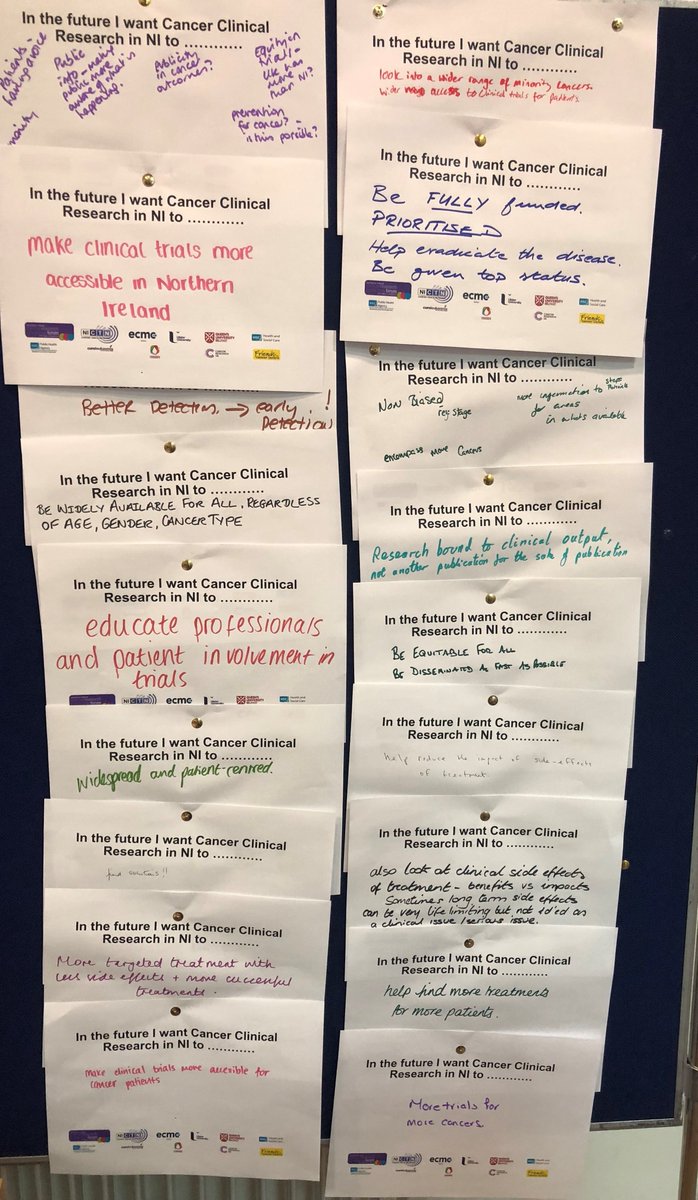 In the future I want Cancer Clinical
Research in NI to ............
Patients -
having a voice
Public
info - making
public more
aware of what is
happening.
Publicity
in cancer
outcomes?
Equity in
trials -
UK has
more
than NI?
prevention
for cancer? -
is this possible?
In the future I want Cancer Clinical
Research in NI to ............
make clinical trials more
accessible in Northern
Ireland
NICTN
ecmc
Public Health
Agency
Health and
Social Care
Friends
Better Detection. → early !
Detection!
In the future I want Cancer Clinical
Research in NI to ............
BE WIDELY AVAILABLE FOR ALL, REGARDLESS
OF AGE, GENDER, CANCER TYPE
In the future I want Cancer Clinical
Research in NI to ............
educate professionals
and patient involvement in
trials
NICTN
ecmc
Health and
Social Care
In the future I want Cancer Clinical
Research in NI to ............
Widespread and patient-centred.
In the future I want Cancer Clinical
Research in NI to ............
find solutions!!
In the future I want Cancer Clinical
Research in NI to ............
More targeted treatment with
less side effects + more successful
treatments.
In the future I want Cancer Clinical
Research in NI to ............
make clinical trials more accesible for
cancer patients
NICTN
ecmc
Friends
In the future I want Cancer Clinical
Research in NI to ............
look into a wider range of minority cancers.
wider access to clinical trials for patients.
In the future I want Cancer Clinical
Research in NI to ............
Be FULLY funded.
PRIORITISED
Help eradicate the disease.
Be given top status.
NICTN
ecmc
Public Health
Agency
Health and
Social Care
Friends
In the future I want Cancer Clinical
Research in NI to ............
Non Biased
re: stage
more information to
for areas
in whats available
encompass more Cancers
In the future I want Cancer Clinical
Research in NI to ............
Research bound to clinical output,
not another publication for the sake of publication
In the future I want Cancer Clinical
Research in NI to ............
BE EQUITABLE FOR ALL
BE DISSEMINATED AS FAST AS POSSIBLE
In the future I want Cancer Clinical
Research in NI to ............
help reduce the impact of side-effects
of treatment.
In the future I want Cancer Clinical
Research in NI to ............
also look at clinical side effects
of treatment - benefits vs impacts
Sometimes long term side effects
can be very life limiting but not id'ed as
a clinical issue/serious issue.
In the future I want Cancer Clinical
Research in NI to ............
help find more treatments
for more patients.
In the future I want Cancer Clinical
Research in NI to ............
More trials for
more cancers.
NICTN
ecmc
Friends